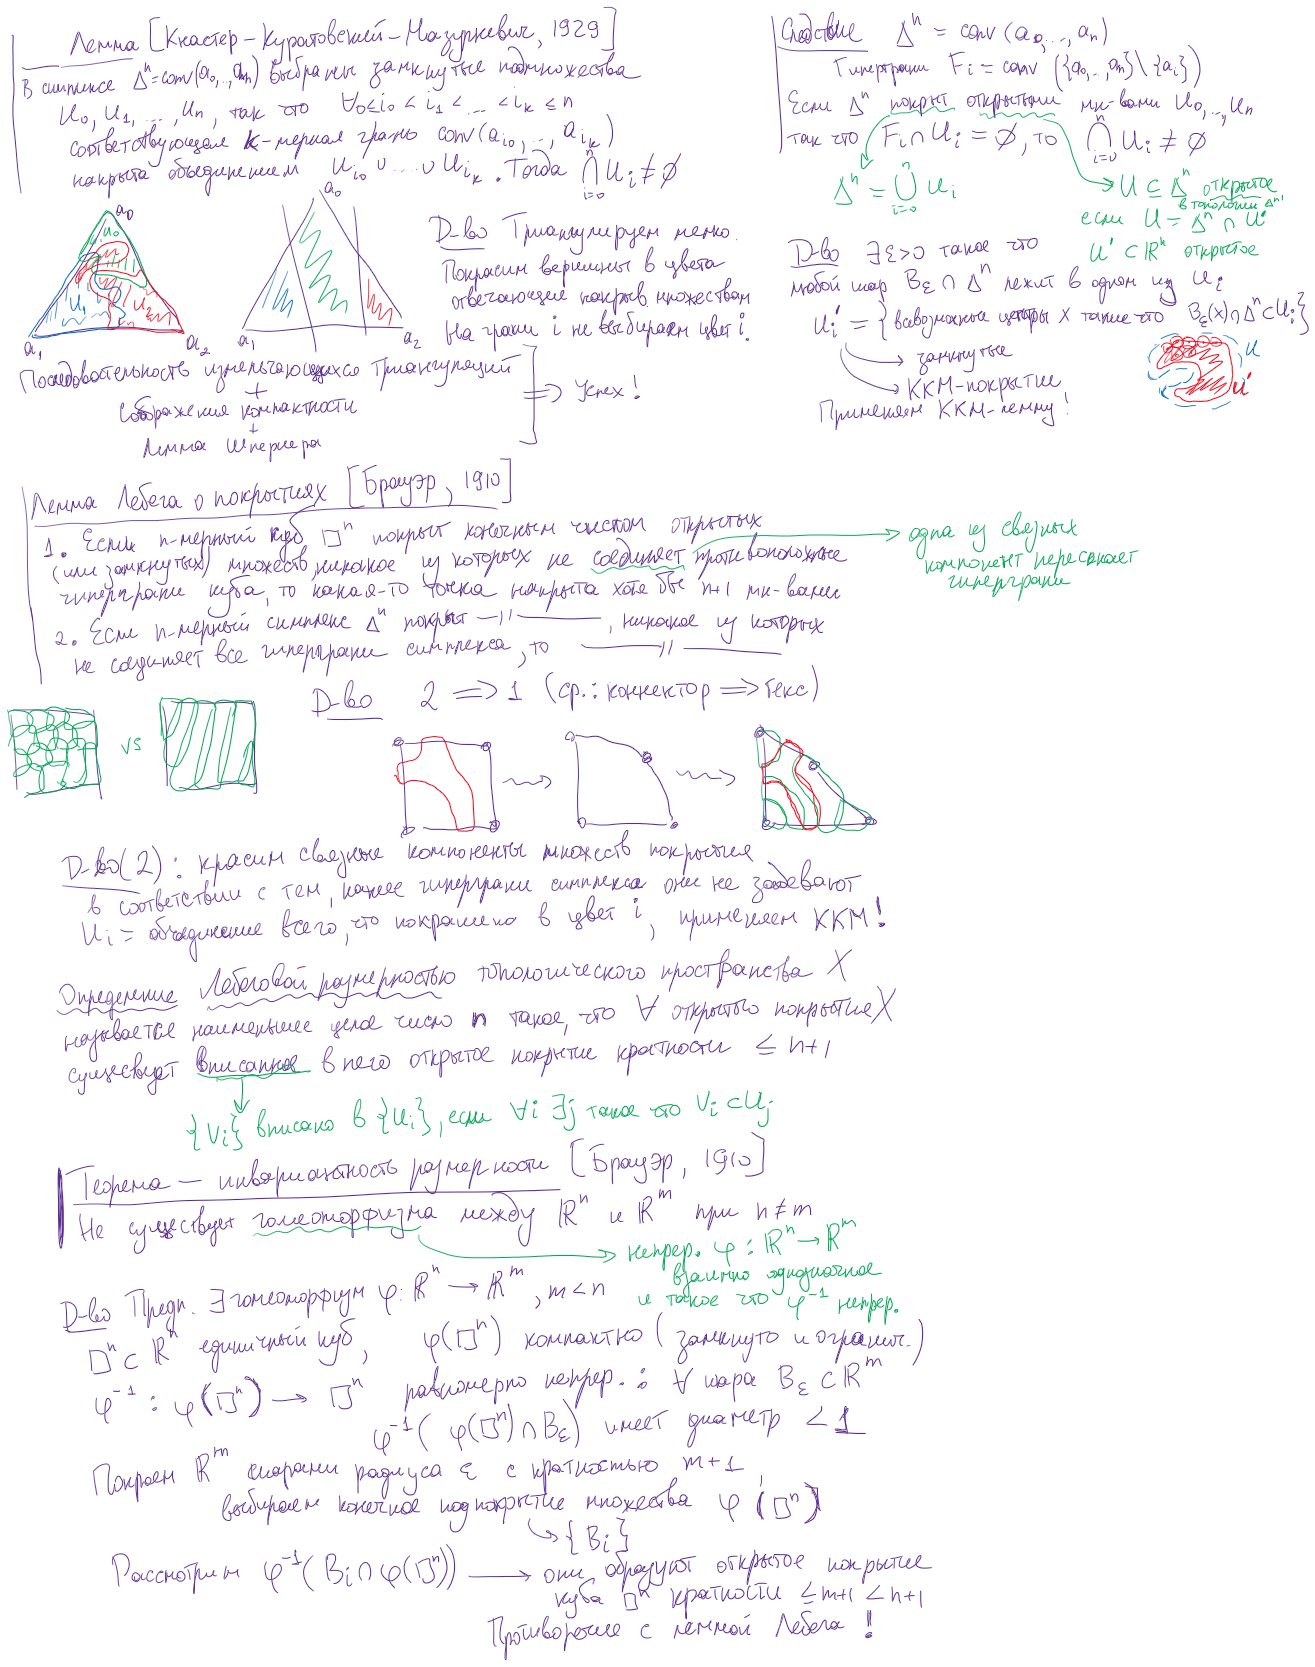 Лемма [Кнастер–Куратовский–Мазуркевич, 1929]
В симплексе Δⁿ=conv(a₀,...,aₙ) выбраны замкнутые подмножества
U₀, U₁, ..., Uₙ, так что ∀ 0≤i₀ < i₁ < ... < iₖ ≤ n
соответствующая k-мерная грань conv(a_{i₀},..., a_{iₖ})
накрыта объединением U_{i₀} ∪ ... ∪ U_{iₖ}. Тогда ⋂_{i=0}^{n} U_i ≠ ∅
a₀
U₀
U₁
U₂
a₁
a₂
a₀
a₁
a₂
Д-во Триангулируем мелко.
Покрасим вершины в цвета
отвечающие накрыв. множествам
На грани i не выбираем цвет i.
Последовательность измельчающихся триангуляций
+
Соображения компактности
+
Лемма Шпернера
⟹ Успех!
Следствие Δⁿ = conv(a₀,..., aₙ)
Гиперграни F_i = conv({a₀,..,aₙ}\{a_i})
Если Δⁿ покрыт открытыми мн-вами U₀,..., Uₙ
так что F_i ∩ U_i = ∅, то ⋂_{i=0}^{n} U_i ≠ ∅
Δⁿ = ⋃_{i=0}^{n} U_i
U ⊆ Δⁿ открытое
в топологии Δⁿ
если U = Δⁿ ∩ U'
U' ⊂ ℝⁿ открытое
Д-во ∃ε>0 такое что
любой шар B_ε ∩ Δⁿ лежит в одном из U_i
U_i' = {всевозможные центры x такие что B_ε(x) ∩ Δⁿ ⊂ U_i}
замкнутые
ККМ-покрытие
Применяем ККМ-лемму!
U
U'
Лемма Лебега о покрытиях [Брауэр, 1910]
1. Если n-мерный куб □ⁿ покрыт конечным числом открытых
(или замкнутых) множеств, никакое из которых не соединяет противоположные
гиперграни куба, то какая-то точка накрыта хотя бы n+1 мн-вами
одна из связных
компонент пересекает
гиперграни
2. Если n-мерный симплекс Δⁿ покрыт —//———, никакое из которых
не соединяет все гиперграни симплекса, то ———//———
Д-во 2 ⟹ 1 (ср.: коннектор ⟹ Гекс)
vs
Д-во(2): красим связные компоненты множеств покрытия
в соответствии с тем, какие гиперграни симплекса они не задевают
U_i = объединение всего, что покрашено в цвет i, применяем ККМ!
Определение Лебеговой размерностью топологического пространства X
называется наименьшее целое число n такое, что ∀ открытого покрытия X
существует вписанное в него открытое покрытие кратности ≤ n+1
{V_i} вписано в {U_i}, если ∀i ∃j такое что V_i ⊂ U_j
Теорема — инвариантность размерности [Брауэр, 1910]
Не существует гомеоморфизма между ℝⁿ и ℝᵐ при n≠m
непрер. φ: ℝⁿ → ℝᵐ
взаимно однозначное
и такое что φ⁻¹ непрер.
Д-во Предп. ∃ гомеоморфизм φ: ℝⁿ → ℝᵐ, m<n
□ⁿ ⊂ ℝⁿ единичный куб, φ(□ⁿ) компактно (замкнуто и огранич.)
φ⁻¹: φ(□ⁿ) → □ⁿ равномерно непрер.: ∀ шара B_ε ⊂ ℝᵐ
φ⁻¹( φ(□ⁿ) ∩ B_ε) имеет диаметр < 1
Покроем ℝᵐ шарами радиуса ε с кратностью m+1,
выбираем конечное подпокрытие множества φ(□ⁿ)
{B_i}
Рассмотрим φ⁻¹(B_i ∩ φ(□ⁿ)) → они образуют открытое покрытие
куба □ⁿ кратности ≤ m+1 < n+1
Противоречие с леммой Лебега!